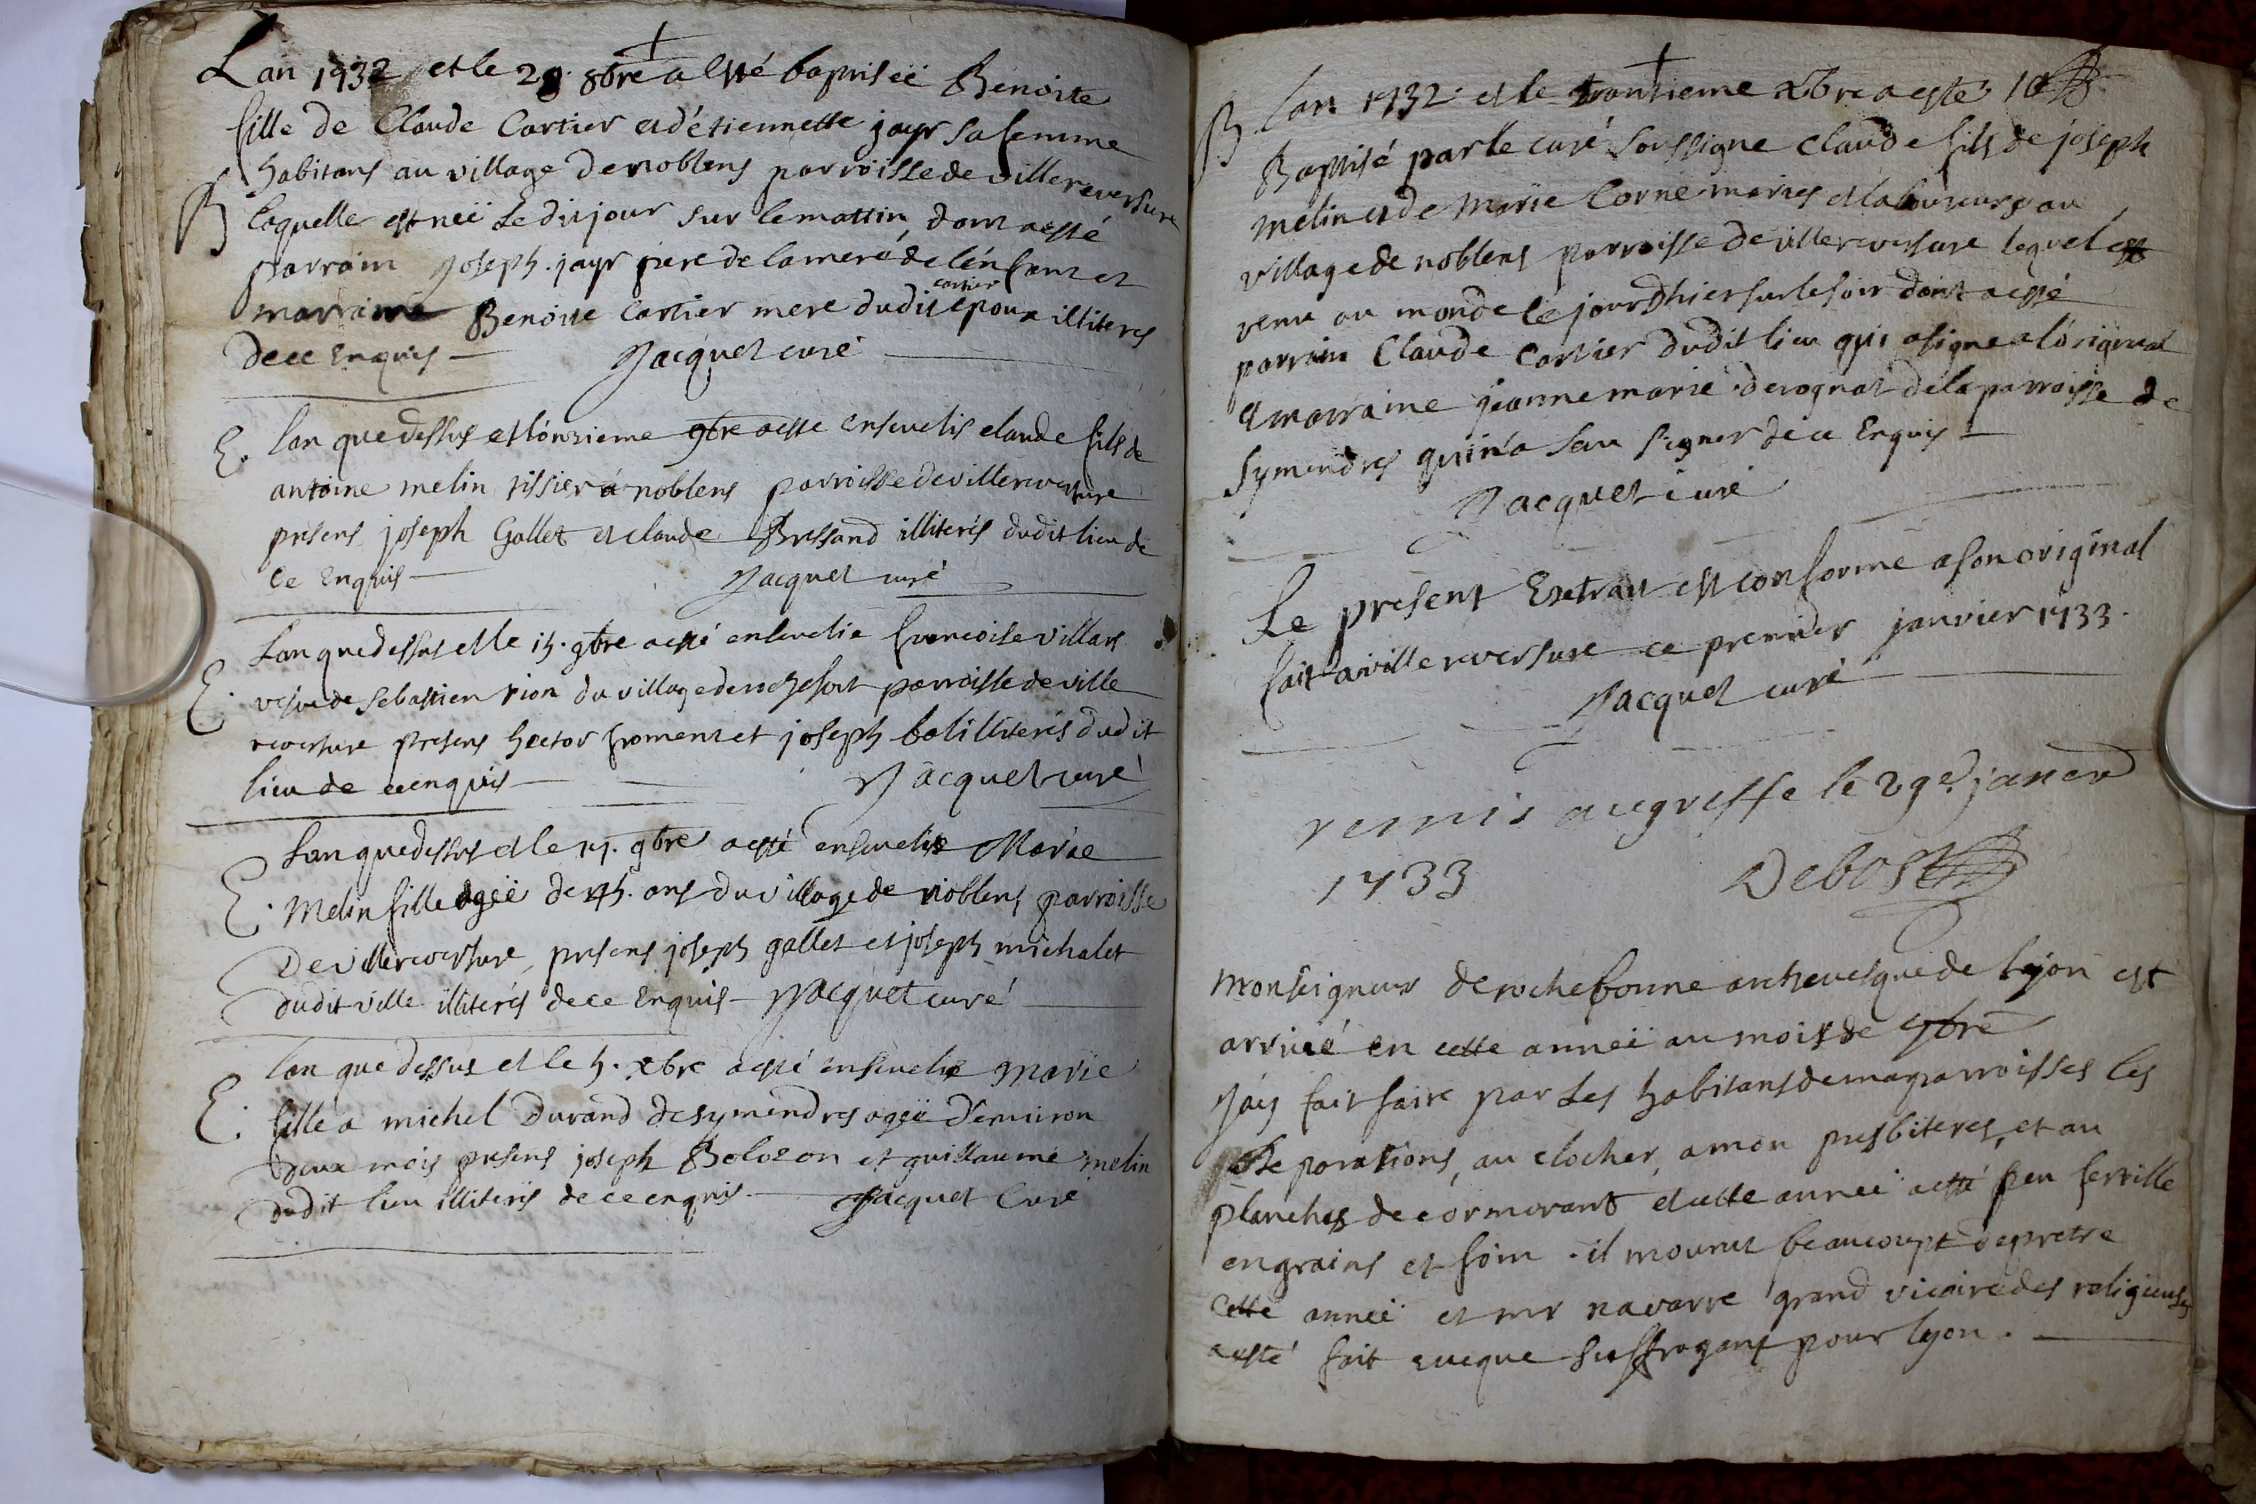 Lan 1732 et le 29. 8bre a esté baptiseë Benoite
fille de Claude Cartier et d'étiennette jayr sa femme
habitans au village de noblens parroisse de villereversure
B laquelle est neë Ledit jour sur le mattin, dont a esté
parrain joseph jayr pere de la mere de lénfant et
marraine Benoite Cartier mere dudit cartier époux illiterés
de ce Enquis — Jacquet curé
E. lan que dessus et lónzieme 9bre a esté ensevelis claude fils de
antoine melin tissier a noblens parroisse de villereversure
presens joseph Gallet et claude Bressand illiterés dudit lieu de
Ce Enquis — Jacquet curé
Lan que dessus et le 15. 9bre a esté ensevelie francoise villars
E. vefve de sebastien rion du village de rochefort parroisse de ville
reversure presens hector froment et joseph bal illiterés dudit
lieu de ce enquis — Jacquet curé
Lan que dessus et le 17. 9bre a esté ensevelie Marie
E. Melin fille ageë de 45. ans du village de noblens parroisse
de villereversure, presens joseph gallet et joseph michalet
dudit ville illiterés de ce Enquis — Jacquet curé
lan que dessus et le 5. xbre a esté ensevelie marie
E. fille a michel Durand de symendres ageë d'environ
deux mois presens joseph Bolozon et guillaume melin
dudit lieu illiterés de ce enquis. — Jacquet Curé
B Lan 1732. et le trantieme xbre a esté 10e
Baptisé par le curé soussigne claude fils de joseph
melin et de marie Corne mariés et laboureurs au
village de noblens parroisse de villereversure lequel est
venu au monde le jour d'hier sur le soir dont a esté
parrain Claude Cartier dudit lieu qui a signe a lóriginal
et marraine jeanne marie derognat de la parroisse de
symendres qui n'a seu signer de ce Enquis —
Jacquet curé
Le present Extrait est conforme a son original
fait a villereversure ce premier janvier 1733.
Jacquet curé
remis au greffe le 29e. janer
1733 Debost
Monseigneur de rochebonne archevesque de lyon est
arrivé en cette anneë au mois de 9bre
Jáy fait faire par Les habitans de ma parroisses les
Reparations, au clocher, a mon presbiteres, et au
planches de cormorant et cette anneë a esté peu fertille
en grains et foin. il mourut beaucoupt de pretre
Cette anneë et mr navarre grand vicaire des religieuses
a esté fait eveque suffragant pour lyon. —